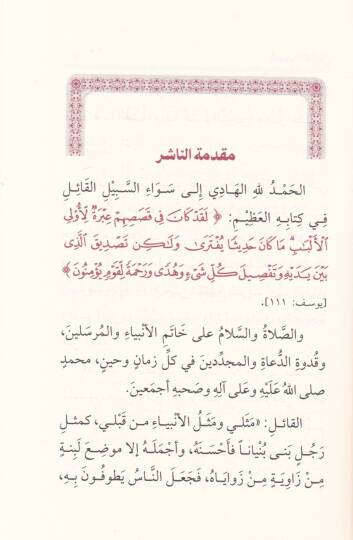 مقدمة الناشر
الحَمْدُ للهِ الهَادِي إِلـى سَـوَاءِ السَّبِيْلِ القَائِلِ
فِـي كِتابِـهِ العَظِيْـمِ: ﴿ لَقَدْ كَانَ فِي قَصَصِهِمْ عِبْرَةٌ لِّأُوْلِي
ٱلْأَلْبَٰبِ مَا كَانَ حَدِيثًا يُفْتَرَىٰ وَلَٰكِن تَصْدِيقَ ٱلَّذِى
بَيْنَ يَدَيْهِ وَتَفْصِيلَ كُلِّ شَىْءٍ وَهُدًى وَرَحْمَةً لِّقَوْمٍ يُؤْمِنُونَ ﴾
[يوسف: ١١١].
والصَّلاةُ والسَّلامُ على خَاتَمِ الأنْبياءِ والمُرسَلينَ،
وقُدوةِ الدُّعاةِ والمجدِّدينَ في كلِّ زمانٍ وحينٍ، محمدٍ
صلى اللهُ عَلَيْهِ وعَلى آلِهِ وصَحبِهِ أجمَعينَ.
القائلِ: «مَثَلي ومَثَلُ الأنْبياءِ مـن قَبْلي، كمثلِ
رَجُلٍ بَنـى بُنْيَاناً فَأَحْسَنَهُ، وأَجْمَلَـهُ إلا موضِعَ لَبِنةٍ
مِـنْ زَاوِيَةٍ مِـنْ زَوَايَاهُ، فَجَعَلَ النَّاسُ يَطوفُونَ بِهِ،